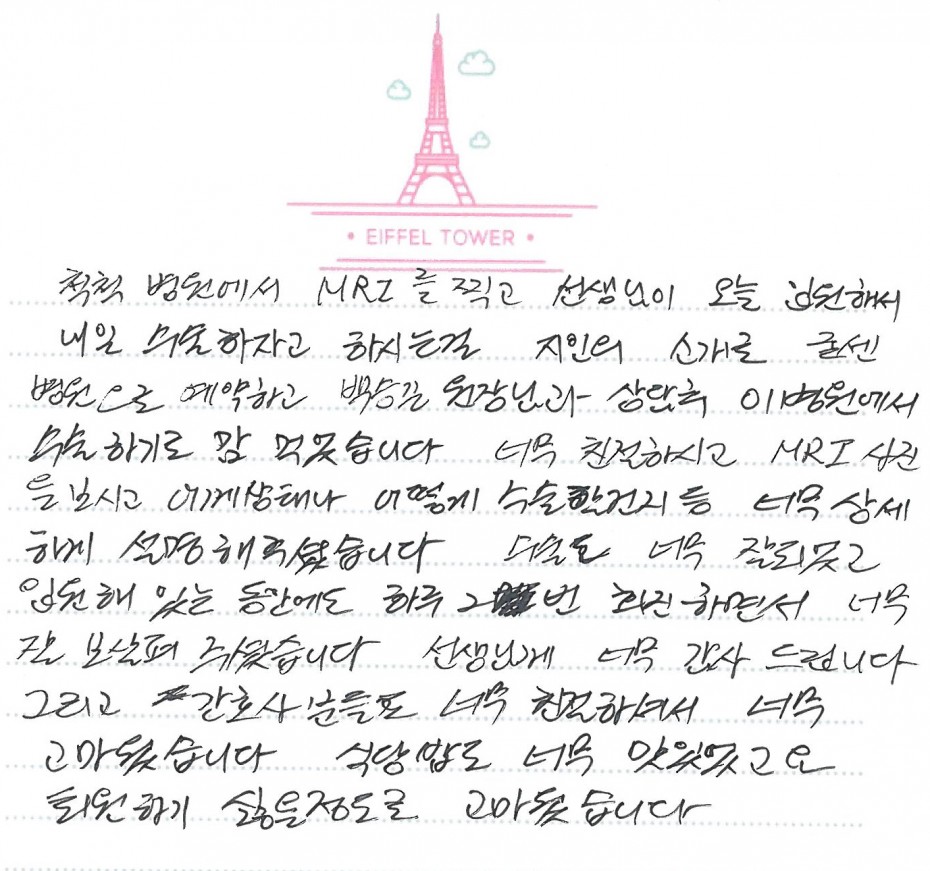 • EIFFEL TOWER •
척척 병원에서 MRI를 찍고 선생님이 오늘 입원해서
내일 수술하자고 하시는걸 지인의 소개로 굳센
병원으로 예약하고 백승길 원장님과 상담후 이병원에서
수술하기로 맘 먹었습니다 너무 친절하시고 MRI 사진
을보시고 어깨상태나 어떻게 수술할건지 등 너무 상세
하게 설명해주셨습니다 수술도 너무 잘되었고
입원해 있는 동안에도 하루 2번 회진하면서 너무
잘 보살펴 주셨습니다 선생님께 너무 감사 드립니다
그리고 간호사분들도 너무 친절하셔서 너무
고마웠습니다 식당밥도 너무 맛있었고요
퇴원하기 싫을정도로 고마웠습니다